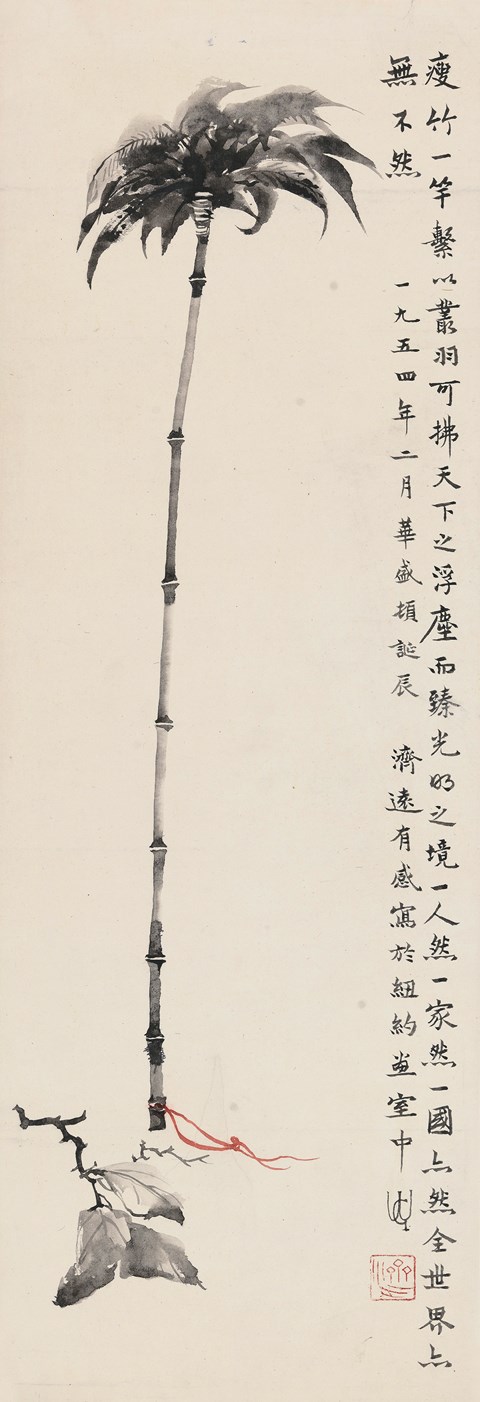 瘦竹一竿繫以叢羽可拂天下之浮塵而臻光明之境一人然一家然一國亦然全世界亦
無不然
一九五四年二月華盛頓誕辰 濟遠有感寫於紐約畫室中